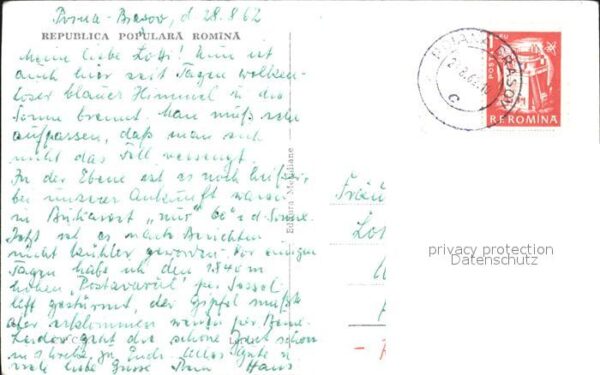 Poiana-Brasov, d 28.8.62
REPUBLICA POPULARĂ ROMÎNĂ
Meine liebe Lotti! Nun ist
auch hier seit Tagen wolken-
loser blauer Himmel u die
Sonne brennt. Man muß sehr
aufpassen, daß man sich
nicht das Fell versengt.
In der Ebene ist es noch heißer,
bei unserer Ankunft waren
in Bukarest „nur" 60° i d Sonne.
Jetzt sei es nach Berichten
nicht kühler geworden. Vor einigen
Tagen habe ich den 1840 m
hohen „Postavarul" per Sessel-
lift gestürmt, der Gipfel mußte
aber erklommen werden per Beine.
Leider geht die schöne Zeit schon
wieder zu Ende. Alles Gute u
viele liebe Grüsse Dein Hans
Editura Meridiane
POIANA BRASOV
C
POSTA
REROMINA
Fräu
Lot
privacy protection
Datenschutz